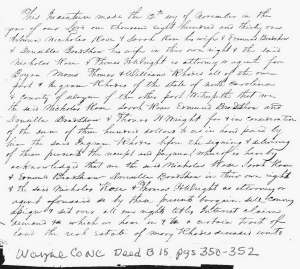 This Indenture made the 12th day of November in the
year of our Lord one thousand eight hundred and thirty one
Between Nicholas Rose & Sarah Rose his wife & Edmund Bradshaw
& Bradshaw his wife in their own right & the said
Nicholas Rose & Thomas H Wright as attorney or agent for
Thomas & William Rhodes all of the one
part & Ingram Rhodes of the state of North Carolina
& county of of the other part Witnesseth that we
the said Nicholas Rose Sarah Rose Edmund Bradshaw and
Bradshaw & Thomas H Wright for & in consideration
of the sum of three hundred dollars to us in hand paid by
him the said Ingram Rhodes before the signing & delivering
of these presents the receipt and payment whereof is hereby
acknowledged that we the said Nicholas Rose Sarah Rose
& Edmund Bradshaw Bradshaw in their own right
& the said Nicholas Rose & Thomas H Wright as attorney or
agent aforesaid do by these presents bargain sell convey
& our all our right title interest claim
demand which we have in & to a certain tract of
land the real estate of Mary Rhodes
Wayne Co NC Deed B 15, pgs 350-352